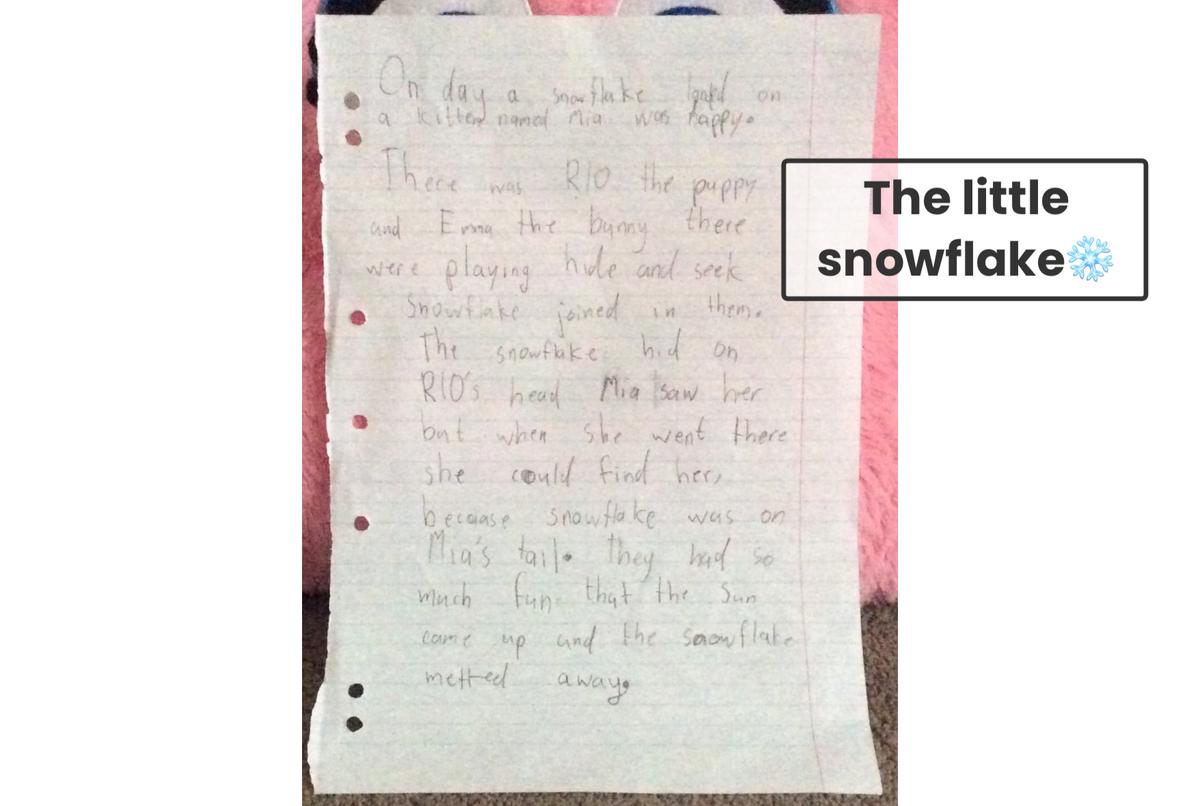 On day a snowflake landed on
a kitten named Mia was happy.
There was RIO the puppy
and Emma the bunny there
were playing hide and seek
Snowflake joined in them.
The snowflake hid on
RIO's head Mia saw her
but when she went there
she could find her,
because snowflake was on
Mia's tail. They had so
much fun that the Sun
came up and the snowflake
metted away.
The little
snowflake❄️